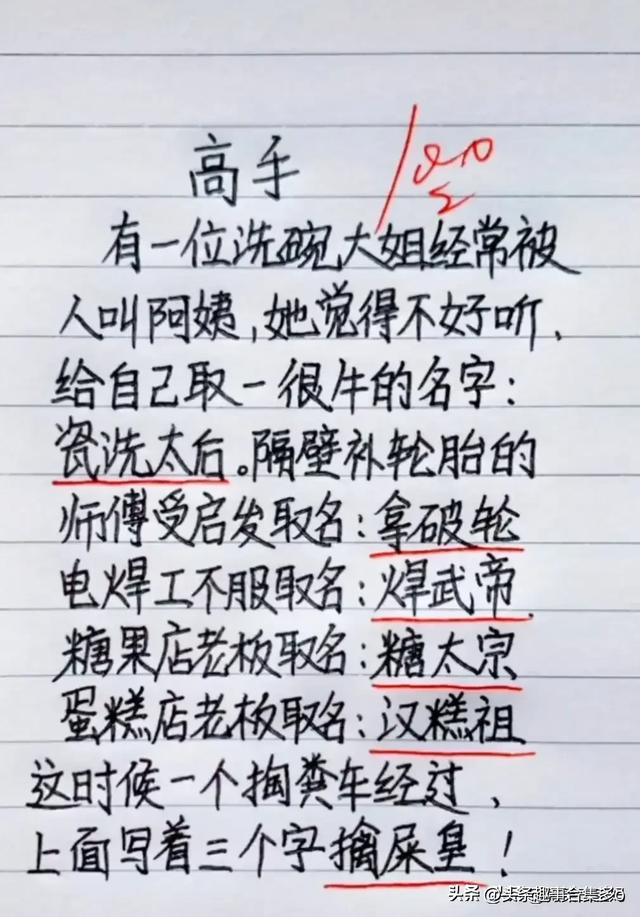 高手
100
有一位洗碗大姐经常被
人叫阿姨,她觉得不好听、
给自己取一很牛的名字:
瓷洗太后。隔壁补轮胎的
师傅受启发取名:拿破轮
电焊工不服取名:焊武帝.
糖果店老板取名:糖太宗
蛋糕店老板取名:汉糕祖
这时候一个掏粪车经过、
上面写着三个字擒屎皇!
头条@趣事合集多多